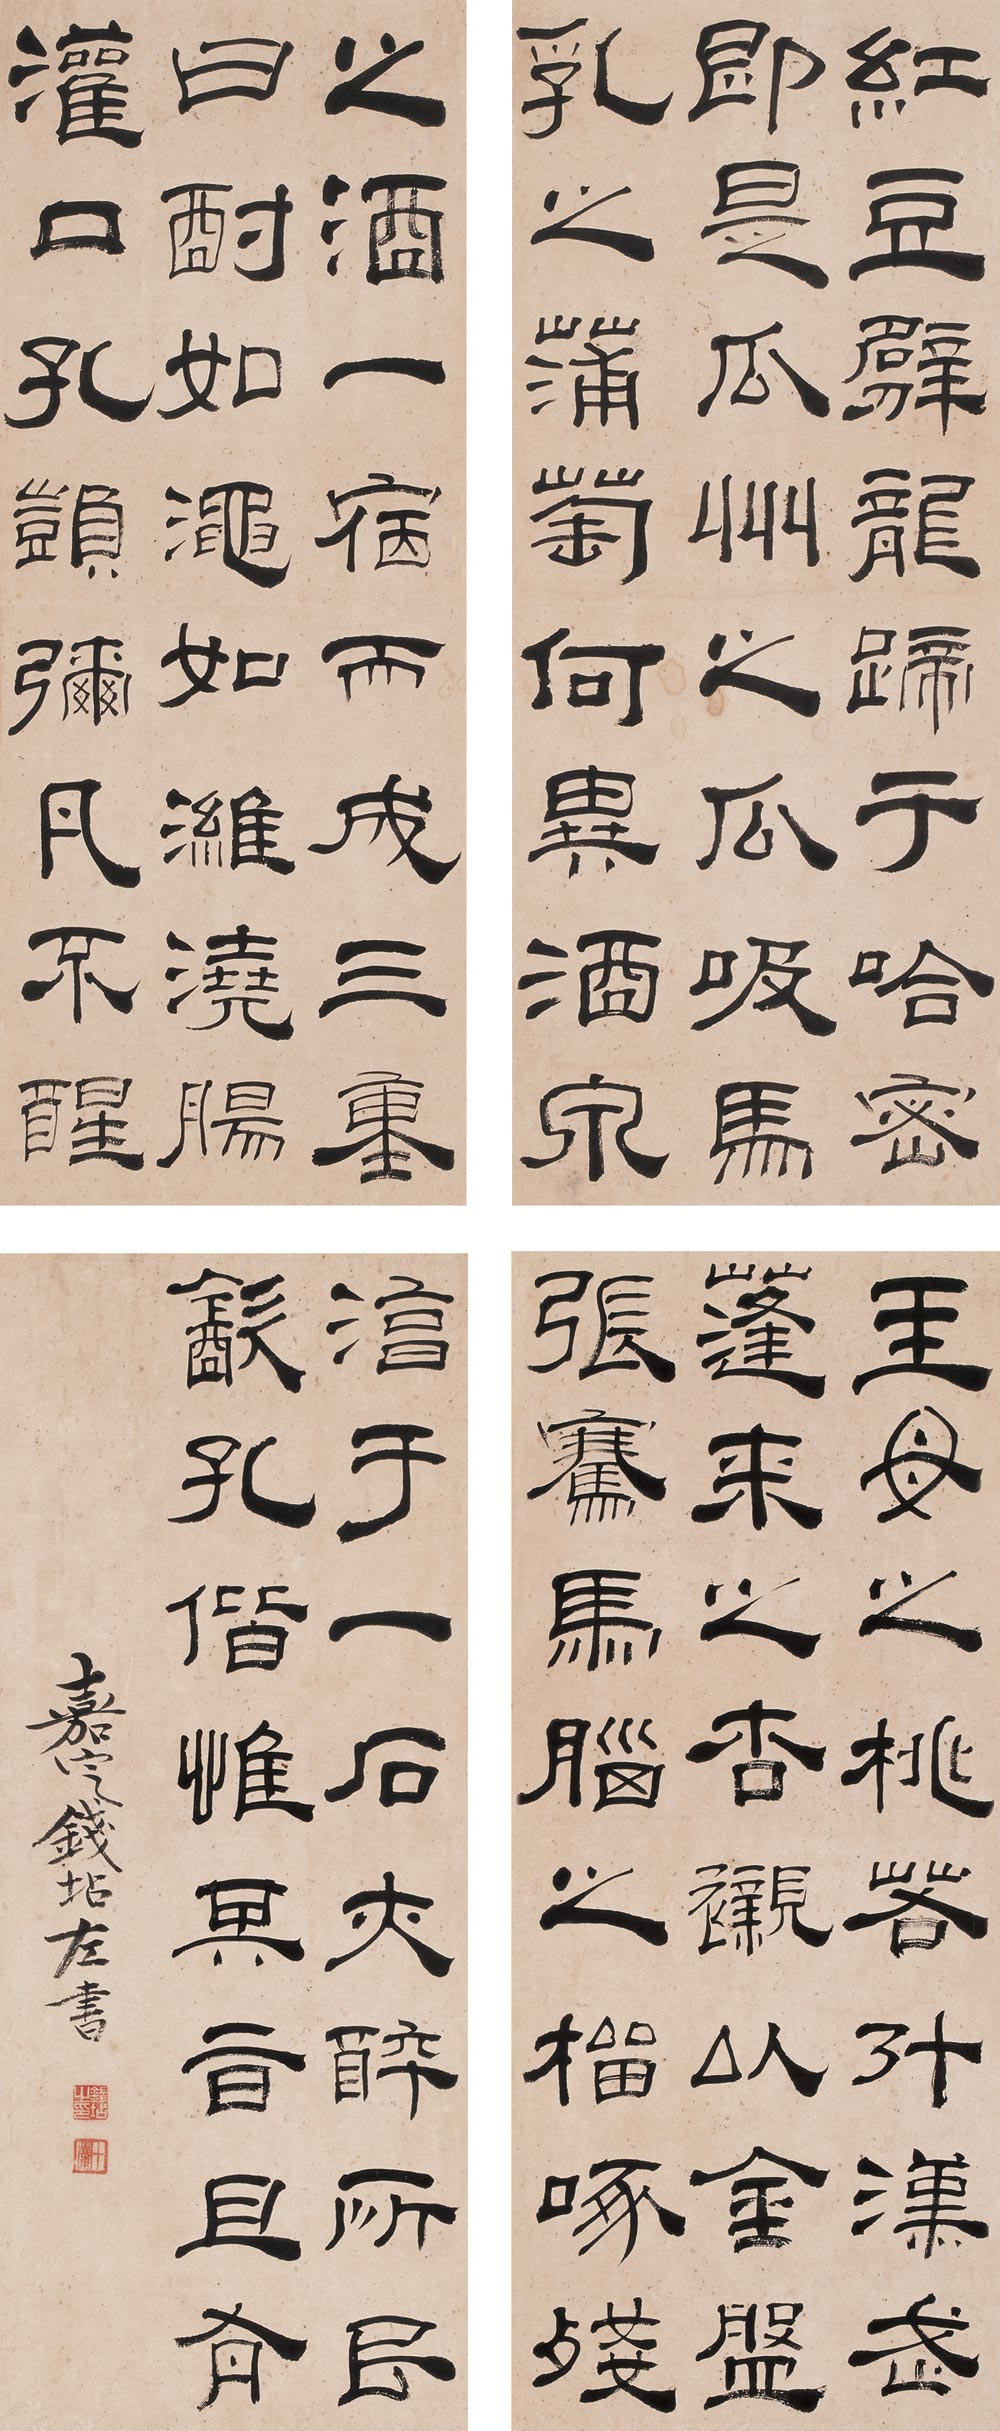 王母之桃漢武
蓬來之杏觀以金盤
張騫馬腦之榴啄殘
紅豆擘龍蹄于哈密
即是瓜州之瓜吸馬
乳之蒲萄何異酒泉
之酒一宿而成三重
曰酎如澠如濰澆腸
灌口孔顗彌月不醒
淳于一石亦醉所㠯
飲孔偕惟其旨且有
嘉定錢坫左書
錢坫之印
十蘭